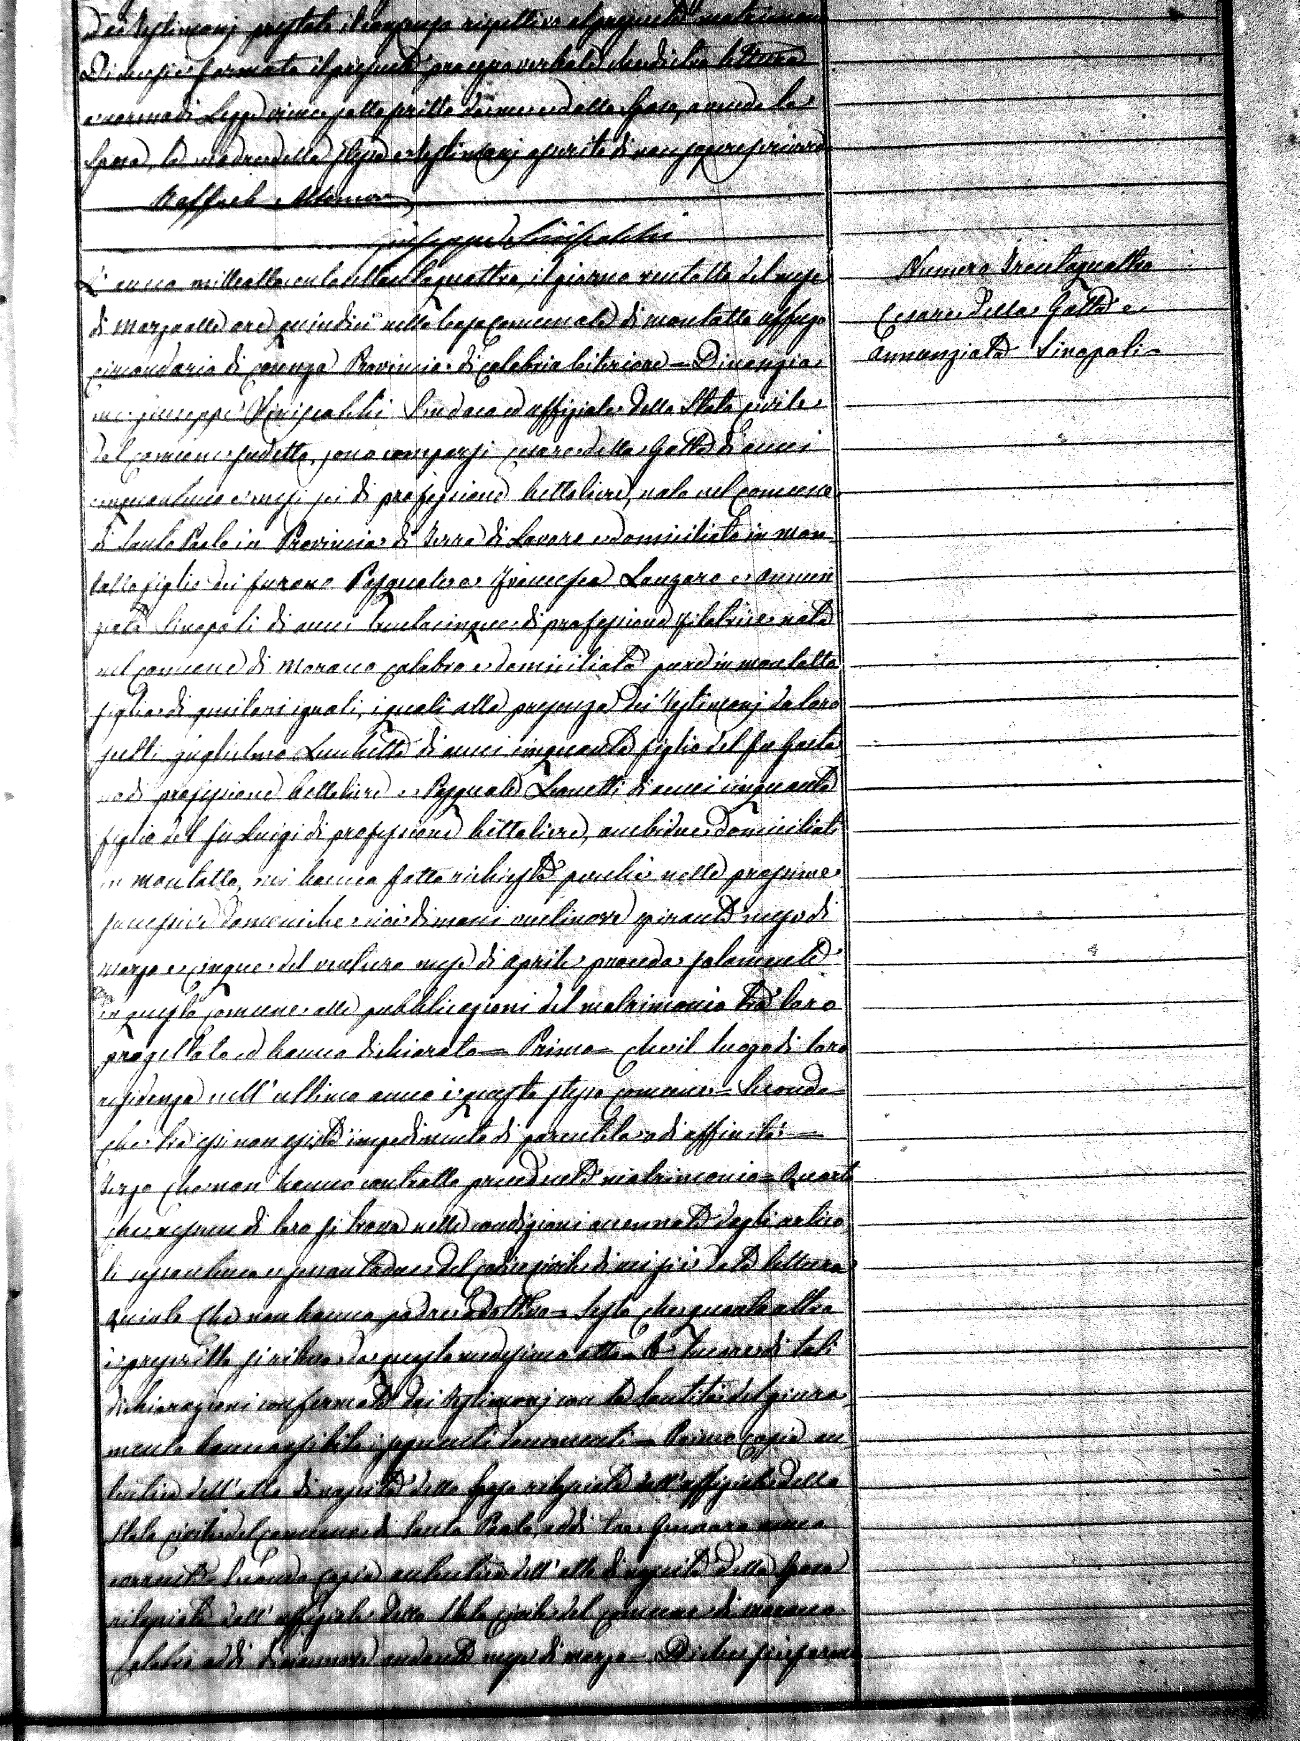 Dei Testimonj prestato il consenso rispettivo al progettato matrimonio
Di che si è formato il presente processo verbale che di lui lettura
a norma di Legge viene sottoscritto da me e dallo Sposo, avendo la
Sposa, la madre della stessa e testimonj asserito di non sapere scrivere
Raffaele Altomare
Giuseppe Siniscalchi
L'anno milleottocentosettantaquattro, il giorno ventotto del mese
di Marzo alle ore quindici nella Casa Comunale di Montalto Uffugo
circondario di Cosenza Provincia di Calabria Citeriore = Dinanzi a
me Giuseppe Siniscalchi Sindaco ed uffiziale dello Stato Civile
del Comune sudetto, sono comparsi Cesare della Gatta di anni
cinquantuno e mesi sei di professione bettoliere, nato nel Comune
di Santo Paolo in Provincia di Terra di Lavoro e domiciliato in Mon-
talto figlio dei furono Pasquale e Francesca Lanzaro e Annun
ziata Sinopoli di anni trentacinque di professione filatrice nata
nel Comune di Morano Calabro e domiciliata pure in Montalto
figlia di genitori ignoti, i quali alla presenza dei Testimonj da loro
scelti Guglielmo di anni cinquanta figlio del fu Gaeta
no di professione bettoliere e Pasquale di anni cinquanta
figlio del fu Luigi di professione bettoliere, ambidue domiciliati
in Montalto, mi hanno fatto richiesta perchè nelle prossime
successive Domeniche cioè dimani ventinove spirante mese di
Marzo e cinque del venturo mese di Aprile proceda solamente
in questo Comune alle pubblicazioni del matrimonio tra loro
progettato ed hanno dichiarato = Primo = che il luogo di loro
residenza nell'ultimo anno è questo stesso Comune = Secondo =
che tra essi non esista impedimento di parentela o di affinità =
Terzo che non hanno contratto precedente matrimonio = Quarto
che nessuno di loro si trova nelle condizioni accennate dagli artico
li sessantuno e sessantadue del codice civile di cui si è data lettura
Quinto che non hanno padre adottivo = Sesto che quanto altro
è prescritto si rileva da questo medesimo atto = A tenore di tali
dichiarazioni confermate dai Testimonj con la Santità del giura
mento hanno esibito i seguenti documenti = Primo copia au-
tentica dell'atto di nascita dello Sposo rilasciata dall'uffiziale dello
Stato Civile del Comune di Santo Paolo addì tre Gennaro anno
corrente Secondo Copia autentica dell'atto di nascita della Sposa
rilasciata dall'uffiziale dello Stato Civile del Comune di Morano
Calabro addì diecinnove andante mese di Marzo = Di che si è forma
Numero Trentaquattro
Cesare della Gatta e
Annunziata Sinopoli =